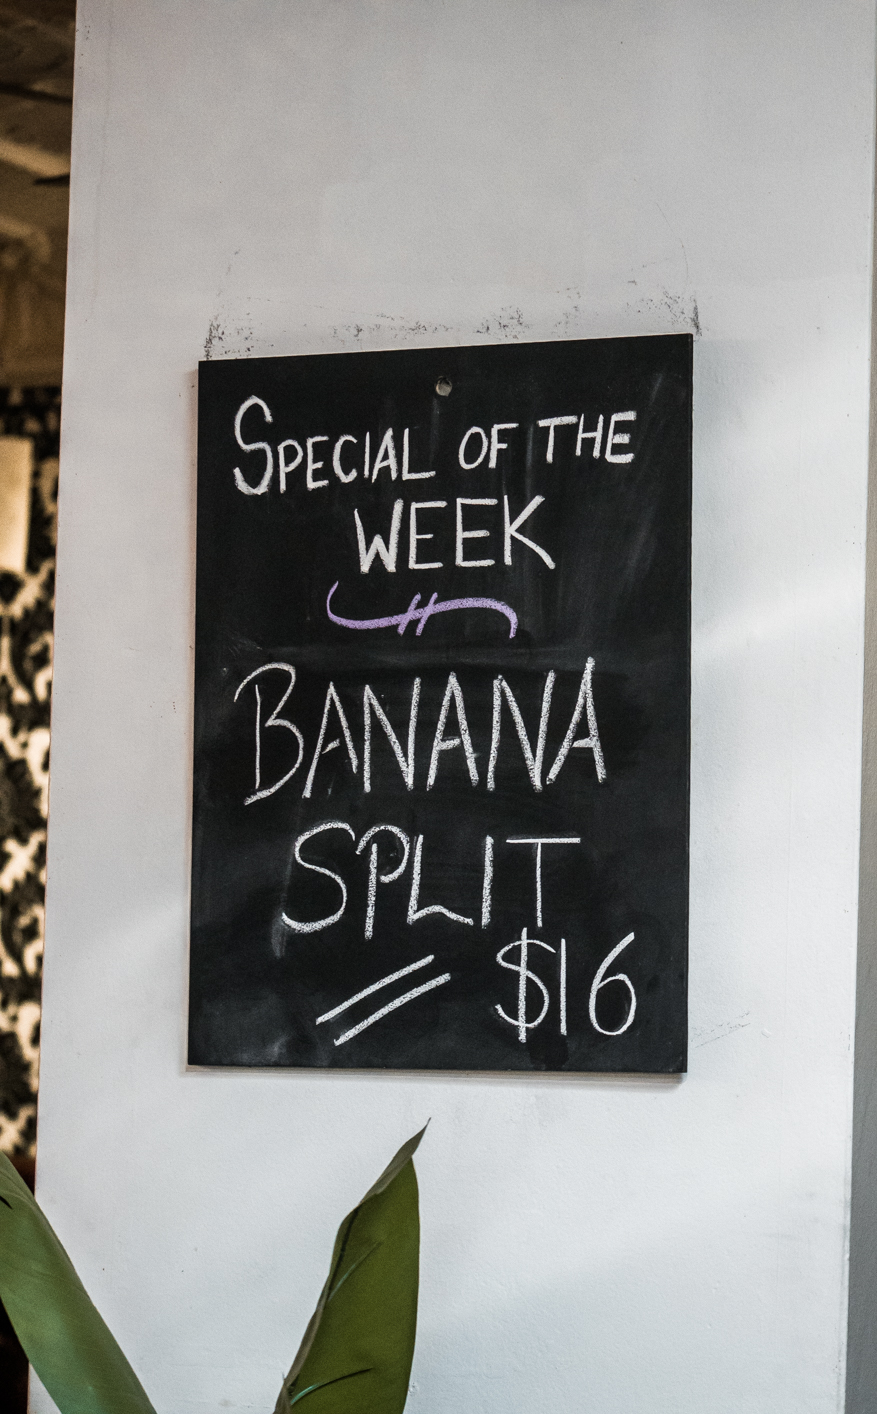 SPECIAL OF THE
WEEK
BANANA
SPLIT
$16